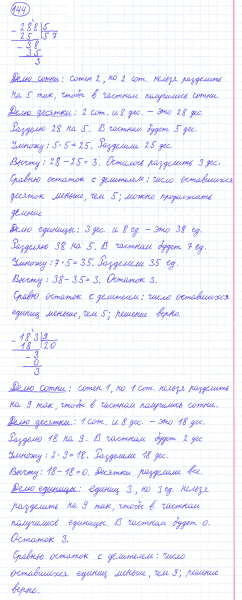 144
- 288 | 5
25 | 57
- 38
35
3
Делю сотни: сотен 2, но 2 сот. нельзя разделить
на 5 так, чтобы в частном получились сотни.
Делю десятки: 2 сот. и 8 дес. – это 28 дес.
Разделю 28 на 5. В частном будет 5 дес.
Умножу: 5·5=25. Разделили 25 дес.
Вычту: 28-25=3. Осталось разделить 3 дес.
Сравню остаток с делителем: число оставшихся
десяток меньше, чем 5; можно продолжать
деление
Делю единицы: 3 дес. и 8 ед. – это 38 ед.
Разделю 38 на 5. В частном будет 7 ед.
Умножу: 7·5=35. Разделили 35 ед.
Вычту: 38-35=3. Остаток 3.
Сравню остаток с делителем: число оставшихся
единиц меньше, чем 5; решение верно.
- 183 | 9
18 | 20
- 3
0
3
Делю сотни: сотен 1, но 1 сот. нельзя разделить
на 9 так, чтобы в частном получились сотни.
Делю десятки: 1 сот. и 8 дес. – это 18 дес.
Разделю 18 на 9. В частном будет 2 дес
Умножу: 2·9=18. Разделили 18 дес.
Вычту: 18-18=0. Десятки разделили все.
Делю единицы: единиц 3, но 3 ед. нельзя
разделить на 9 так, чтобы в частном
получились единицы. В частном будет 0.
Остаток 3.
Сравню остаток с делителем: число
оставшихся единиц меньше, чем 9; решение
верно.